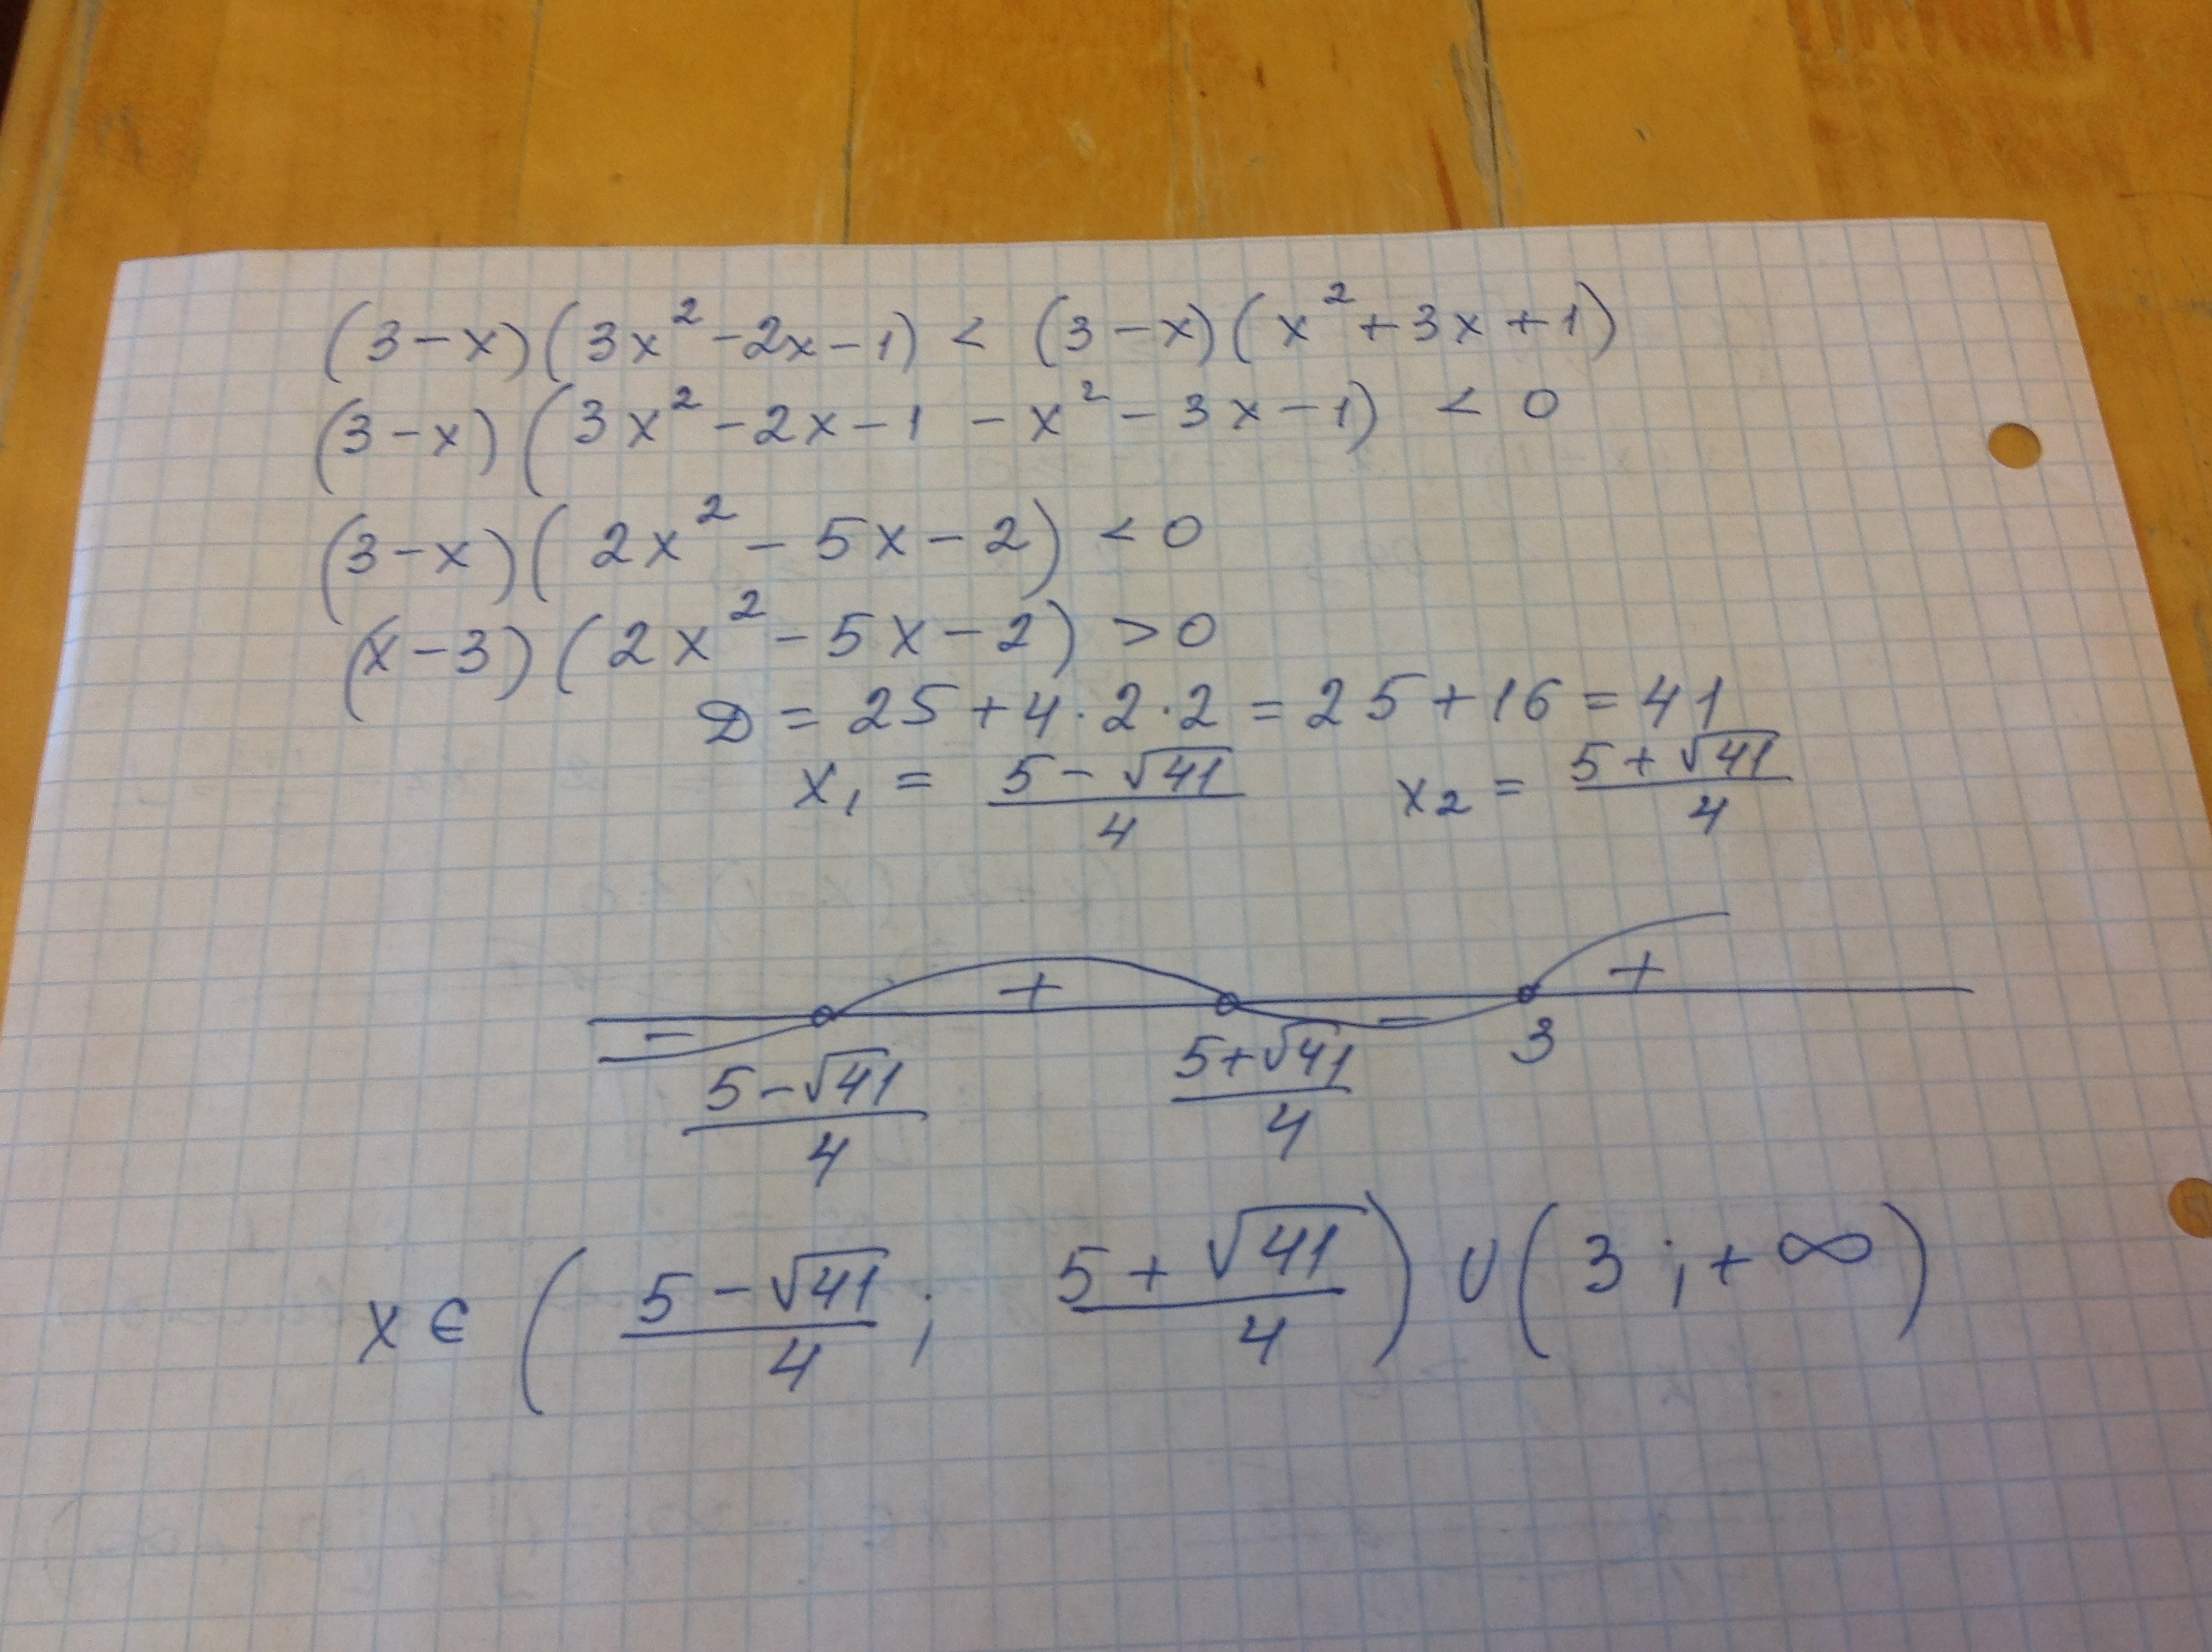 (3-x)(3x²-2x-1) < (3-x)(x²+3x+1)
(3-x)(3x²-2x-1-x²-3x-1) < 0
(3-x)(2x²-5x-2) < 0
(x-3)(2x²-5x-2) > 0
D = 25+4·2·2 = 25+16 = 41
x₁ = (5-√41)/4 x₂ = (5+√41)/4
- + - +
(5-√41)/4 (5+√41)/4 3
x ∈ ((5-√41)/4; (5+√41)/4) ∪ (3; +∞)